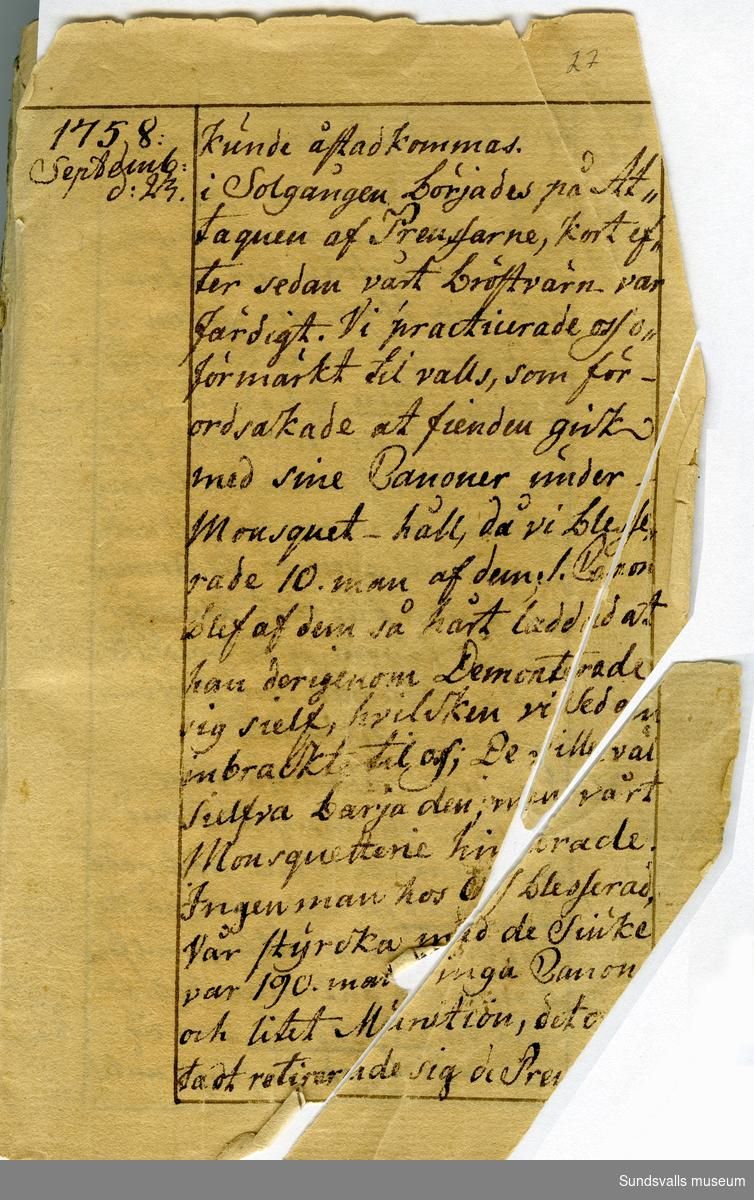 27
1758:
Septemb:
d: 23.
kunde åstadkommas.
i Solgången börjades på At„
taquen af Preussarne, kort ef„
ter sedan vårt bröstvärn var
färdigt. Vi practicerade oss o„
förmärkt til valls, som för-
ordsakade at fienden gick
med sine Canoner under
Mousquet-håll, då vi blesse„
rade 10. man af dem, 1. Canon
blef af dem så hårt laddad at
han derigenom Demonterade
sig sielf, hvilcken vi sedan
inbrackte til oss; De ville väl
sielfva bärja den, men vårt
Mousquetterie hindrade.
Ingen man hos Oss blesserad,
Vår styrcka med de Siuke
var 190. man inga Canon
och litet Munition, det o
tadt retirerade sig de Preu
Sundsvalls museum